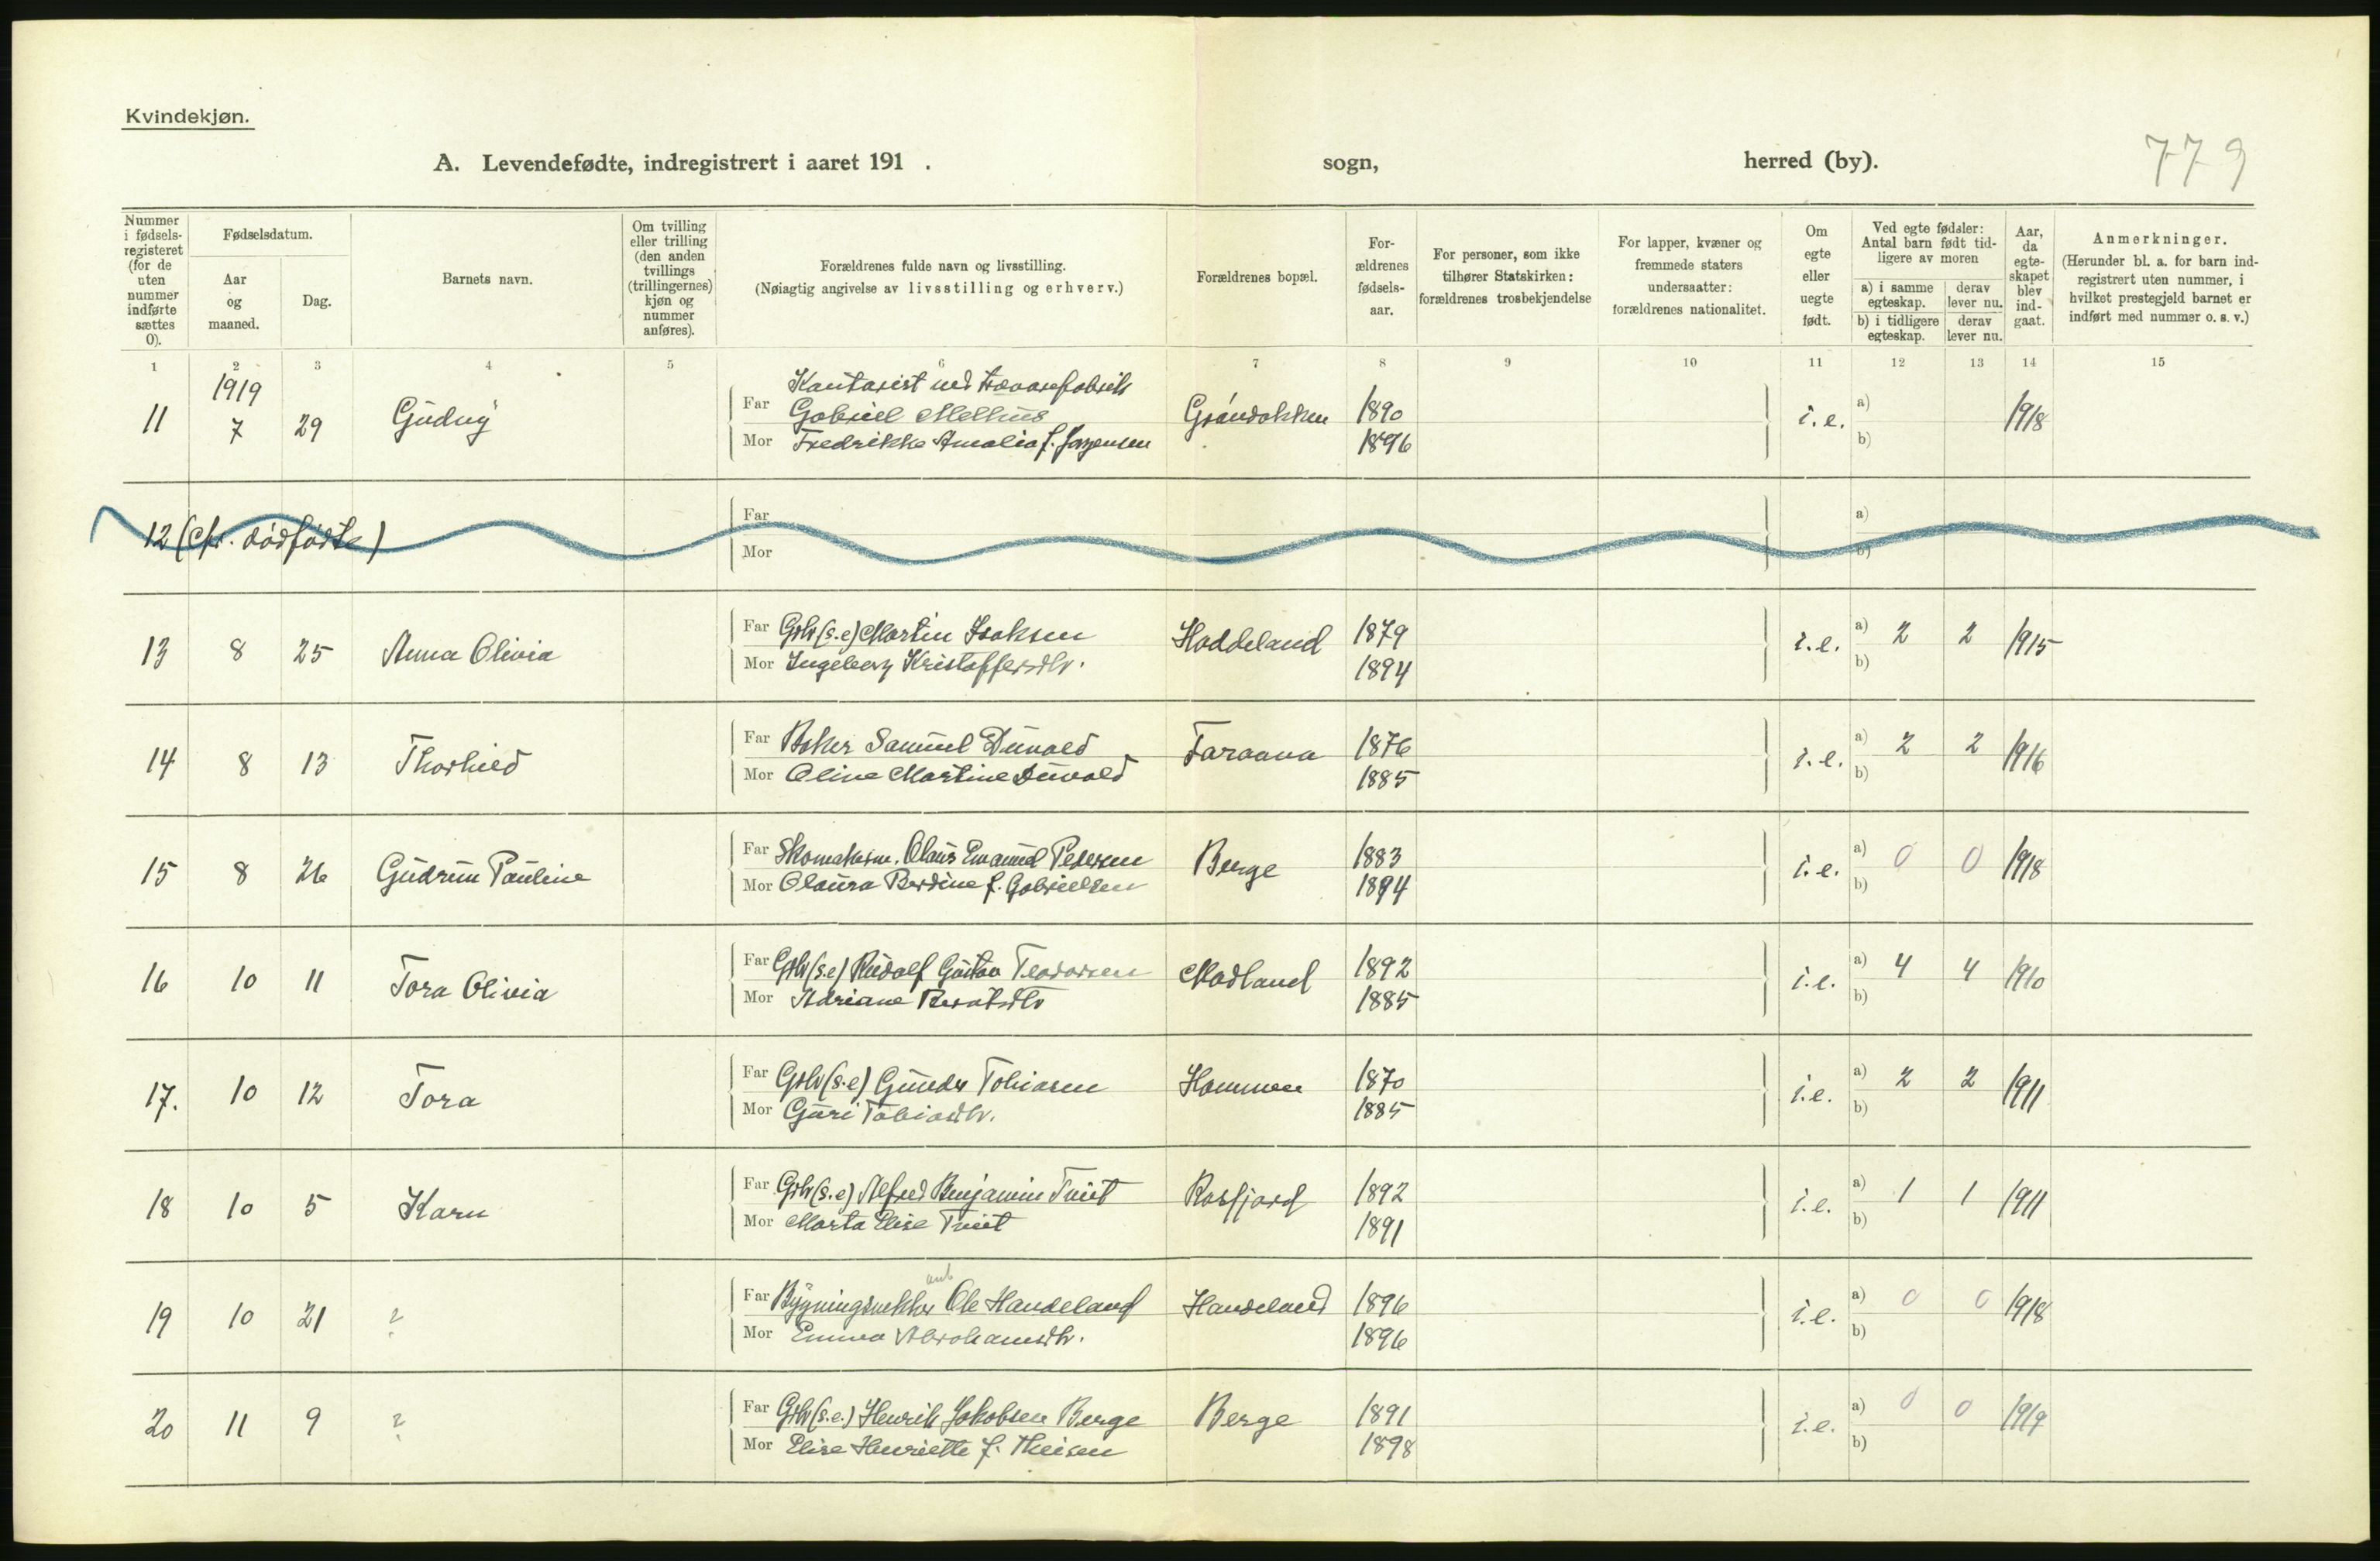 Kvindekjøn.
A. Levendefødte, indregistrert i aaret 191 . sogn, herred (by). 779
Nummer i fødsels-registeret (for de uten nummer indførte sættes 0).
Fødselsdatum.
Aar og maaned.
Dag.
Barnets navn.
Om tvilling eller trilling (den anden tvillings (trillingernes) kjøn og nummer anføres).
Forældrenes fulde navn og livsstilling.
(Nøiagtig angivelse av livsstilling og erhverv.)
Forældrenes bopæl.
For-ældrenes fødsels-aar.
For personer, som ikke tilhører Statskirken: forældrenes trosbekjendelse
For lapper, kvæner og fremmede staters undersaatter: forældrenes nationalitet.
Om egte eller uegte født.
Ved egte fødsler: Antal barn født tid-ligere av moren
a) i samme egteskap. derav lever nu.
b) i tidligere egteskap. derav lever nu.
Aar, da egte-skapet blev ind-gaat.
Anmerkninger.
(Herunder bl. a. for barn ind-registrert uten nummer, i hvilket prestegjeld barnet er indført med nummer o. s. v.)
1 2 3 4 5 6 7 8 9 10 11 12 13 14 15
1919
Kontorist ved trævarefabrik
11 7 29 Gudny Far Gabriel Melhus 1890 i. e. a) 1918
Mor Fredrikke Amalia f. Jørgensen 1896 b)
12 (cfr. dødfødte) Far a)
Mor b)
13 8 25 Anna Olivia Far Grbr (s.e) Martin Isaksen Haddeland 1879 i. e. a) 2 2 1915
Mor Ingeborg Kristoffersdtr. 1894 b)
14 8 13 Thorhild Far Baker Samuel Dunvold Faraana 1876 i. e. a) 2 2 1916
Mor Oline Martine Dunvold 1885 b)
15 8 26 Gudrun Pauline Far Skomakerm. Olaus Emanuel Pedersen Berge 1883 i. e. a) 0 0 1918
Mor Olaura Berdine f. Gabrielsen 1894 b)
16 10 11 Tora Olivia Far Grbr (s.e) Rudolf Gustav Teodorsen Madland 1892 i. e. a) 4 4 1910
Mor Adriane Berntsdtr 1885 b)
17. 10 12 Tora Far Grbr (s.e) Gunder Tobiasen Hommen 1870 i. e. a) 2 2 1911
Mor Guri Tobiasdtr. 1885 b)
18 10 5 Karn Far Grbr (s.e) Alfred Benjamin Tveit Rosfjord 1892 i. e. a) 1 1 1911
Mor Marta Elise Tveit 1891 b)
19 10 21 ? Far Bygningssnekker Ole Handeland Handeland 1896 i. e. a) 0 0 1918
Mor Emma Abrahamsdtr. 1896 b)
20 11 9 ? Far Grbr (s.e.) Henrik Jakobsen Berge Berge 1891 i. e. a) 0 0 1919
Mor Elise Henriette f. Theisen 1898 b)